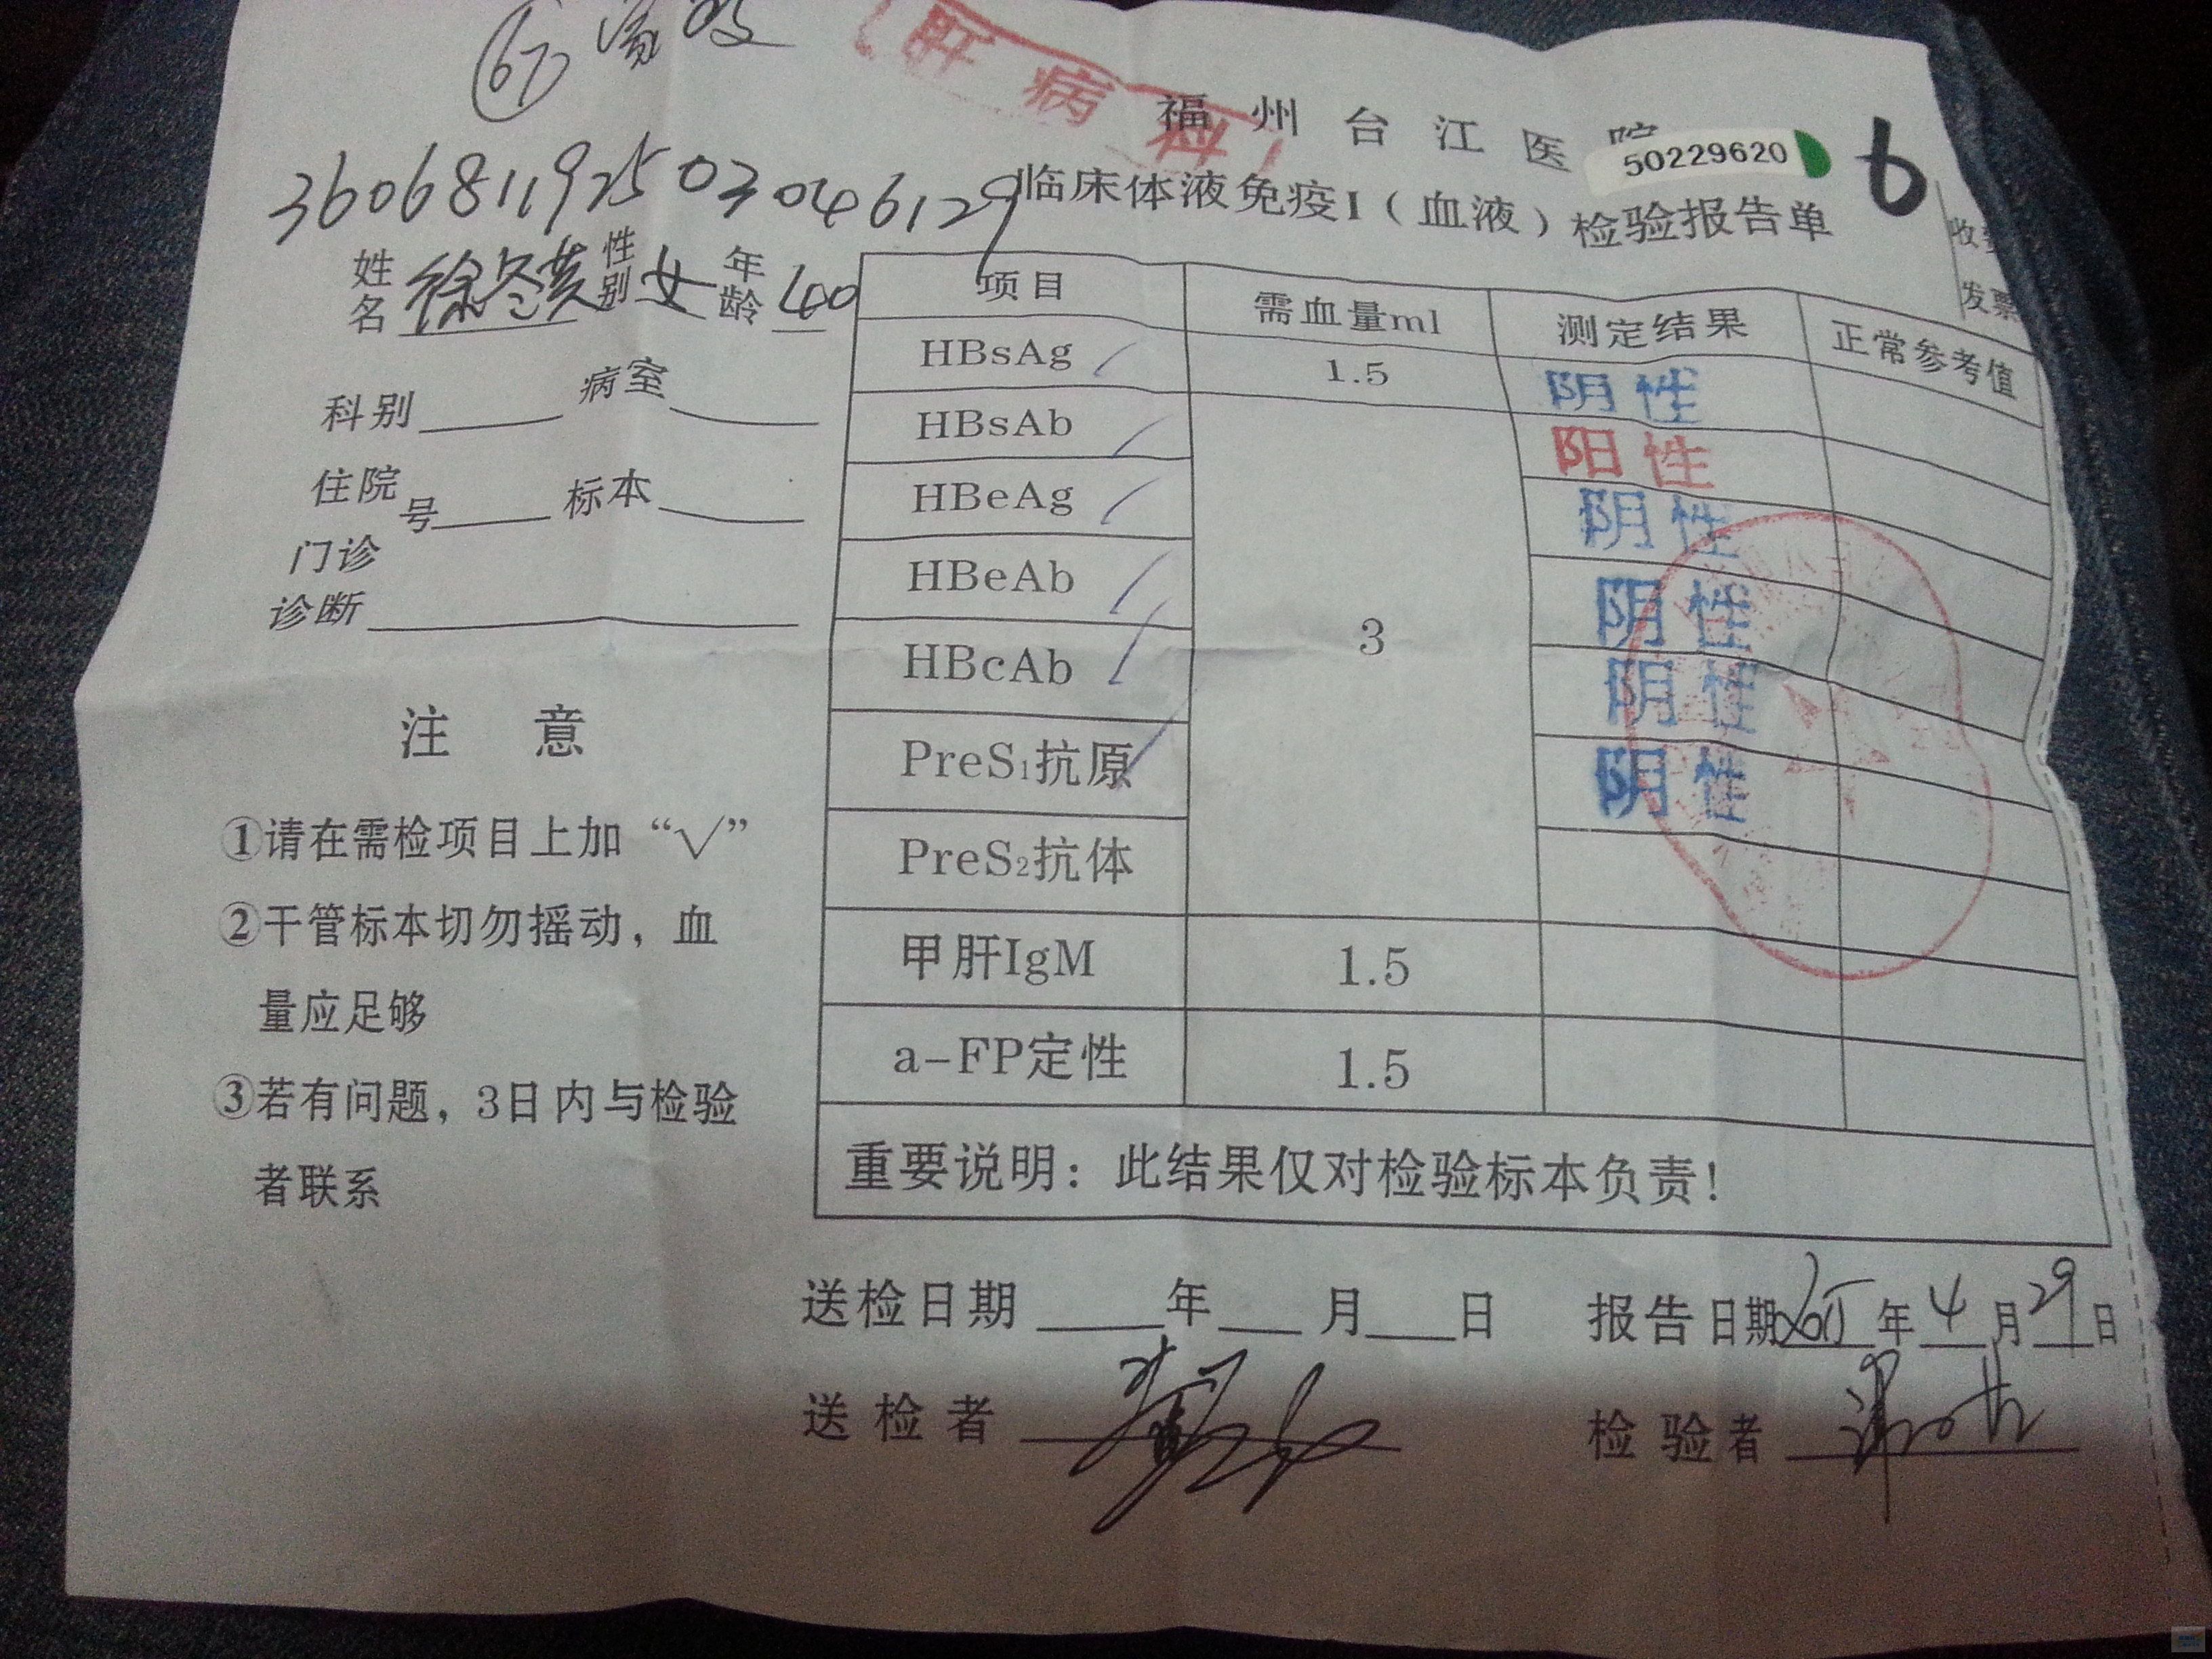 67
肝病科
福州台江医院
50229620
6
360681192503046129
临床体液免疫I（血液）检验报告单
收费
发票
姓名 徐冬英 性别 女 年龄 40
科别 病室
住院号 标本
门诊
诊断
项目 需血量ml 测定结果 正常参考值
HBsAg 1.5 阴性
HBsAb 阳性
HBeAg 阴性
HBeAb 阴性
3
HBcAb 阴性
PreS₁抗原 阴性
PreS₂抗体
甲肝IgM 1.5
a-FP定性 1.5
重要说明：此结果仅对检验标本负责！
注 意
①请在需检项目上加“√”
②干管标本切勿摇动，血
量应足够
③若有问题，3日内与检验
者联系
送检日期 年 月 日 报告日期 年 4 月 29 日
送检者 检验者